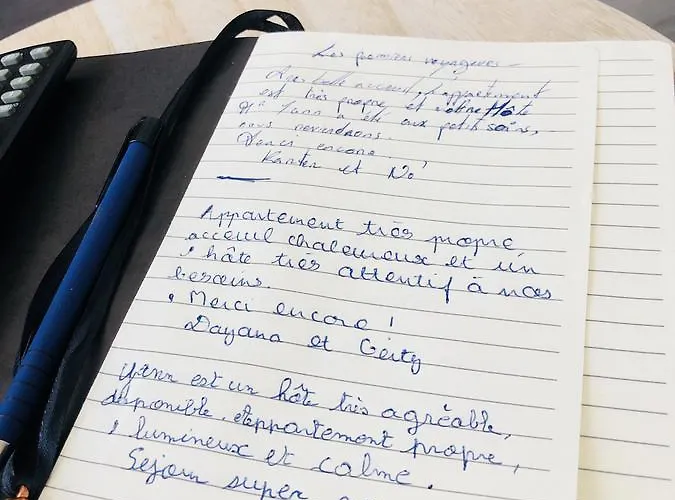 Les premiers voyageurs -
Très belle acceuil, l'appartement
est très propre et votre Hôte
Mr Yann a été aux petits soins,
nous reviendrons.
Merci encore.
et No
Appartement très propre
acceuil chaleureux et un
hôte très attentif à nos
besoins.
Merci encore !
Dayana et
Yann est un hôte très agréable,
disponible, appartement propre,
lumineux et calme.
Séjour super